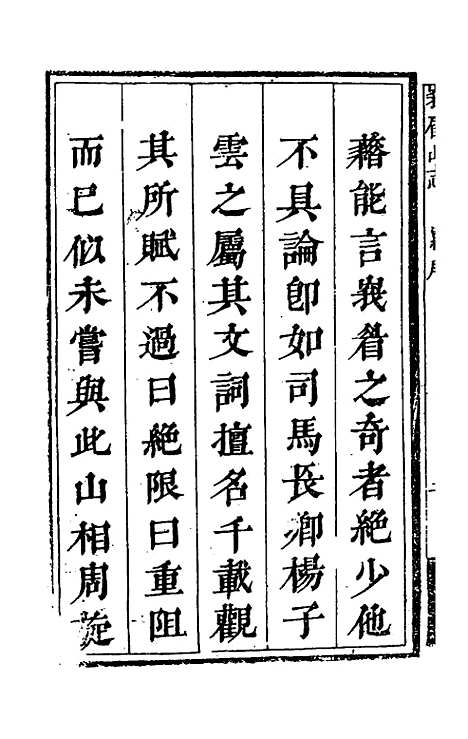 藉能言峩眉之奇者絶少他
不具論即如司馬長卿楊子
雲之屬其文詞擅名千載觀
其所賦不過曰絶限曰重阻
而已似未嘗與此山相周旋